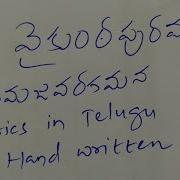 వైకుంఠపురమ
మజవరగమన
rics in Telugu
Hand written